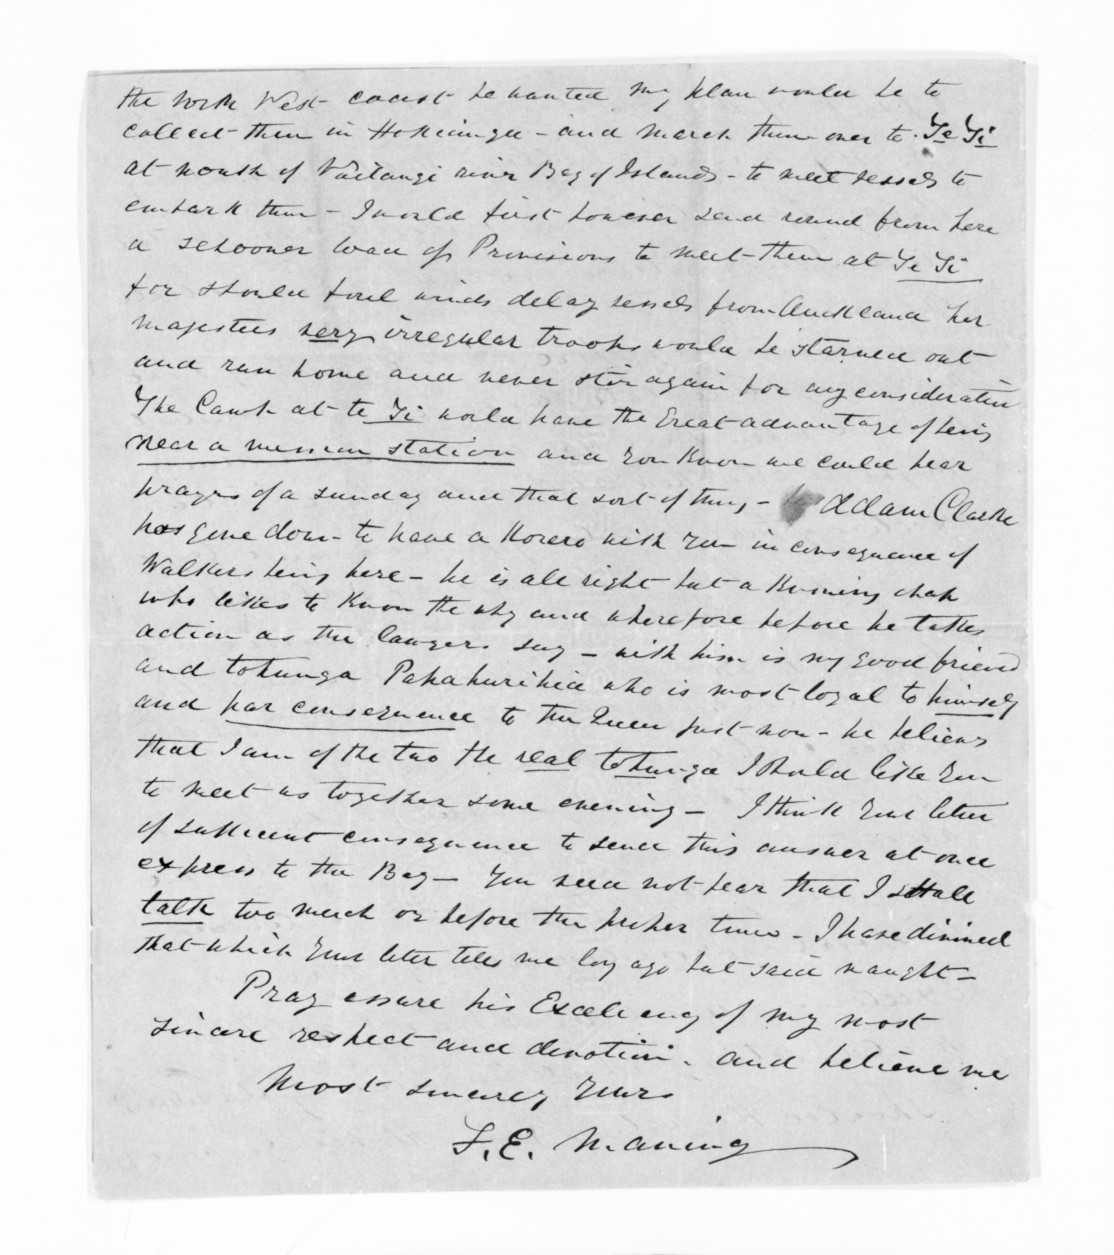 the North West coast be wanted my plan would be to
collect them in Hokianga - and march them over to Te Ti
at mouth of Waitangi river Bay of Islands - to meet vessels to
embark them - I would first however send round from here
a schooner load of Provisions to meet them at Te Ti
for should foul winds delay vessels from Auckland her
majesties very irregular troops would be starved out
and run home and never stir again for any consideration
The Camp at te Ti would have the Great advantage of being
near a mission station and you know we could hear
prayers of a sunday and that sort of thing - Adam Clarke
has gone down to have a Korero with you in consequence of
Walkers being here - he is all right but a Kunning chap
who likes to Know the why and wherefore before he takes
action as the lawyers say - with him is my good friend
and tohunga Papahurihia who is most loyal to himself
and par consequence to the Queen just now - he believes
that I am of the two the real tohunga I should like you
to meet us together some evening - I think your letter
of sufficient consequence to send this answer at once
express to the Bay - You need not fear that I shall
talk too much or before the proper time - I have divined
that which your letter tells me long ago but said naught -
Pray assure his Excellency of my most
sincere respect and devotion. and believe me
Most sincerely yours
F. E. Maning